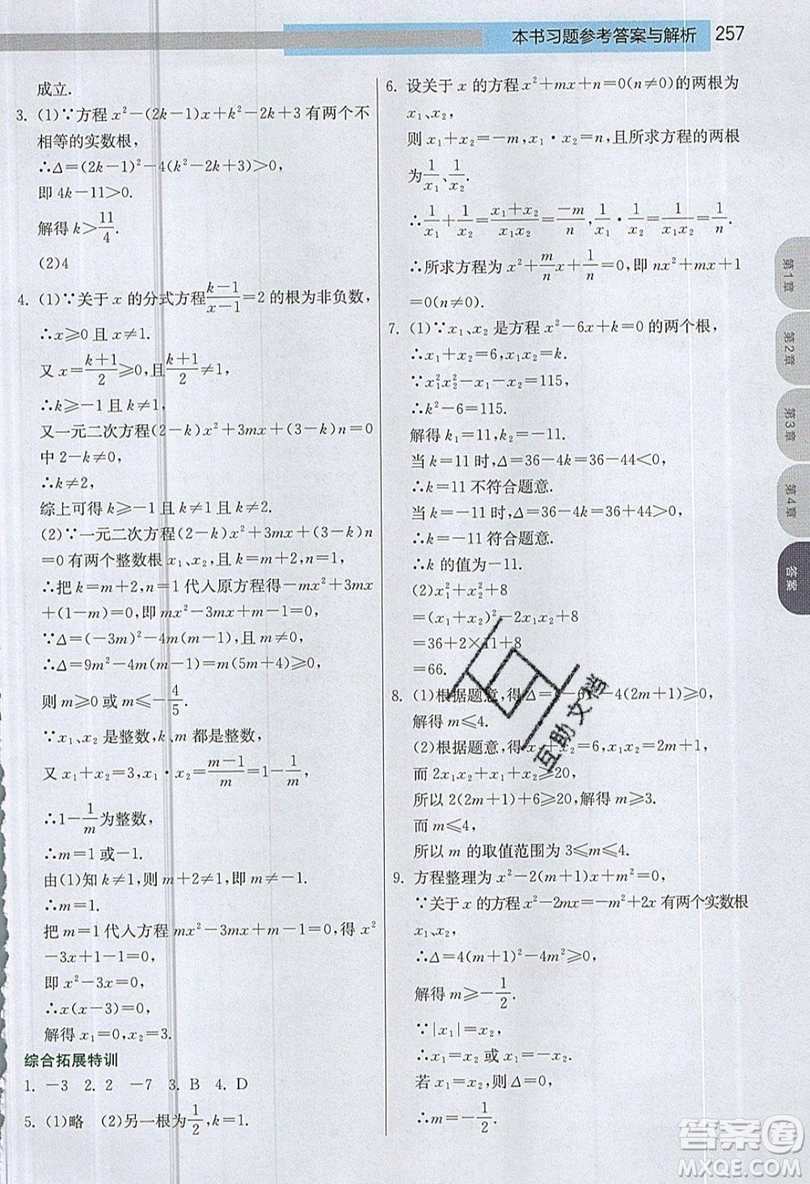 本书习题参考答案与解析 257
成立.
3. (1)∵方程 x²-(2k-1)x+k²-2k+3 有两个不
相等的实数根,
∴Δ=(2k-1)²-4(k²-2k+3)>0.
即 4k-11>0.
解得 k>11/4.
(2)4
4. (1)∵关于 x 的分式方程(k-1)/(x-1)=2 的根为非负数,
∴x≥0 且 x≠1.
又 x=(k+1)/2≥0,且(k+1)/2≠1,
∴k≥-1 且 k≠1.
又一元二次方程(2-k)x²+3mx+(3-k)n=0
中 2-k≠0,
∴k≠2,
综上可得 k≥-1 且 k≠1 且 k≠2.
(2)∵一元二次方程(2-k)x²+3mx+(3-k)n
=0 有两个整数根 x₁、x₂,且 k=m+2,n=1 时,
∴把 k=m+2,n=1 代入原方程得-mx²+3mx
+(1-m)=0,即 mx²-3mx+m-1=0.
∴Δ=(-3m)²-4m(m-1)≥0,
∴Δ=9m²-4m(m-1)=m(5m+4)≥0,
则 m≥0 或 m≤-4/5.
∵x₁、x₂ 是整数,k、m 都是整数,
又 x₁+x₂=3,x₁·x₂=(m-1)/m=1-1/m,
∴1-1/m为整数,
∴m=1 或-1.
由(1)知k≠1,则 m+2≠1,即 m≠-1.
∴m=1.
把 m=1 代入方程 mx²-3mx+m-1=0,得 x²
-3x+1-1=0,
即 x²-3x=0,
∴x(x-3)=0,
解得 x₁=0,x₂=3.
综合拓展特训
1. -3 2. 2 -7 3. B 4. D
5. (1)略 (2)另一根为1/2,k=1.
6. 设关于 x 的方程 x²+mx+n=0(n≠0)的两根为
x₁、x₂,
则 x₁+x₂=-m,x₁·x₂=n,且所求方程的两根
为1/x₁、1/x₂.
∴1/x₁+1/x₂=(x₁+x₂)/(x₁x₂)=-m/n,1/x₁·1/x₂=1/n.
∴所求方程为 x²+(m/n)x+1/n=0,即 nx²+mx+1
=0(n≠0).
7. (1)∵x₁、x₂ 是方程 x²-6x+k=0 的两个根,
∴x₁+x₂=6,x₁x₂=k.
∵x₁²x₂²-x₁-x₂=115,
∴k²-6=115.
解得 k₁=11,k₂=-11.
当 k=11 时,Δ=36-4k=36-44<0,
∴k=11 不符合题意.
当 k=-11 时,Δ=36-4k=36+44>0,
∴k=-11 符合题意.
∴k 的值为-11.
(2)x₁²+x₂²+8
=(x₁+x₂)²-2x₁x₂+8
=36+2×11+8
=66.
8. (1)根据题意,得Δ=-6-4(2m+1)≥0,
解得 m≤4.
(2)根据题意,得 x₁+x₂=6,x₁x₂=2m+1,
而 2x₁x₂+x₁+x₂≥20,
所以 2(2m+1)+6≥20,解得 m≥3.
而 m≤4,
所以 m 的取值范围为 3≤m≤4.
9. 方程整理为 x²-2(m+1)x+m²=0,
∵关于 x 的方程 x²-2mx=-m²+2x 有两个实数根
x₁、x₂,
∴Δ=4(m+1)²-4m²≥0,
解得 m≥-1/2.
∵|x₁|=x₂,
∴x₁=x₂ 或 x₁=-x₂.
若 x₁=x₂,则Δ=0,
∴m=-1/2.
第1章
第2章
第3章
第4章
答案
互助文档
答案圈
MXQE.COM